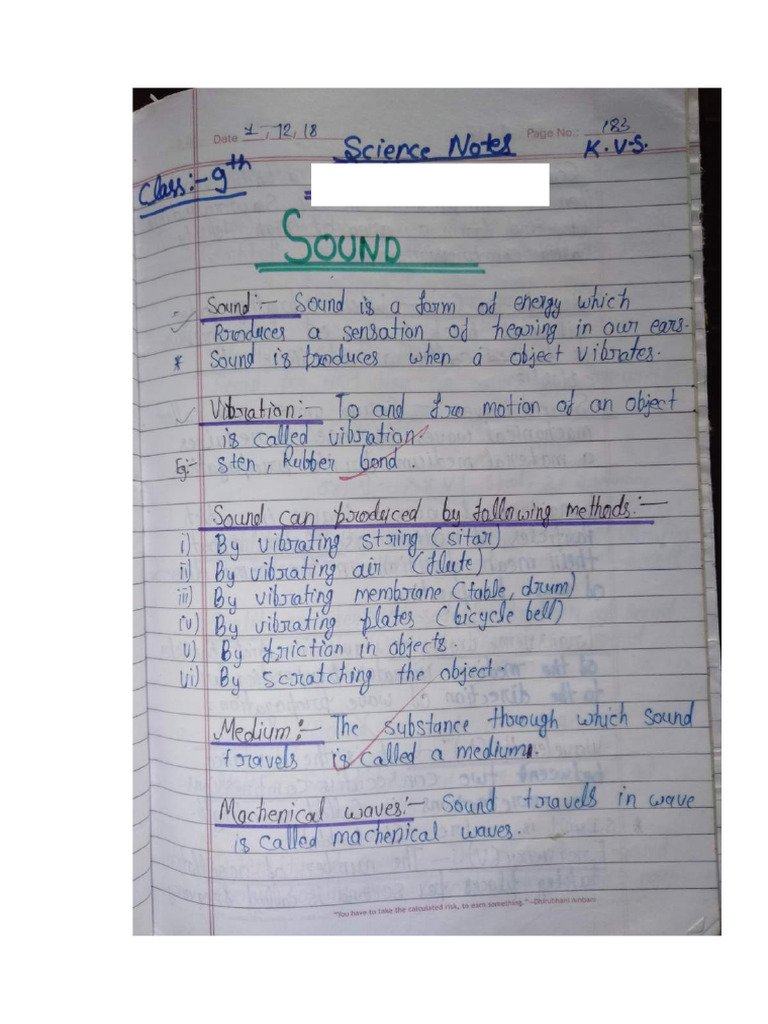 Date 1, 12, 18 Page No.: 183
Science Notes K.V.S.
Class:- 9th
SOUND
Sound:- Sound is a form of energy which
Produces a sensation of hearing in our ears.
* Sound is produces when a object vibrates.
Vibration:- To and fro motion of an object
is called vibration.
Eg:- Sten, Rubber band.
Sound can produced by following methods:-
i) By vibrating string (sitar)
ii) By vibrating air (flute)
iii) By vibrating membrane (table, drum)
iv) By vibrating plates (bicycle bell)
v) By friction in objects.
vi) By scratching the object.
Medium:- The substance thorough which sound
travels is called a medium.
Machenical waves:- Sound travels in wave
is called machenical waves.
"You have to take the calculated risk, to earn something." –Dhirubhani Ambani